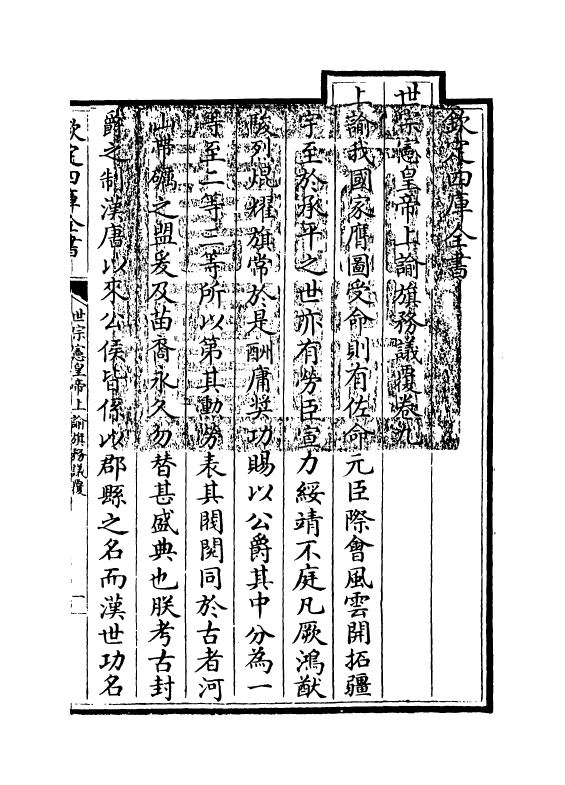 欽定四庫全書
世宗憲皇帝上諭旗務議覆卷九
上諭我國家膺圖受命則有佐命元臣際會風雲開拓疆
宇至於承平之世亦有勞臣宣力綏靖不庭凡厥鴻猷
駿烈焜耀旗常於是酬庸奬功賜以公爵其中分為一
等至二等三等所以第其勳勞表其閥閲同於古者河
山帶礪之盟爰及苗裔永久勿替甚盛典也朕考古封
爵之制漢唐以來公侯皆係以郡縣之名而漢世功名
欽定四庫全書
世宗憲皇帝上諭旗務議覆
一